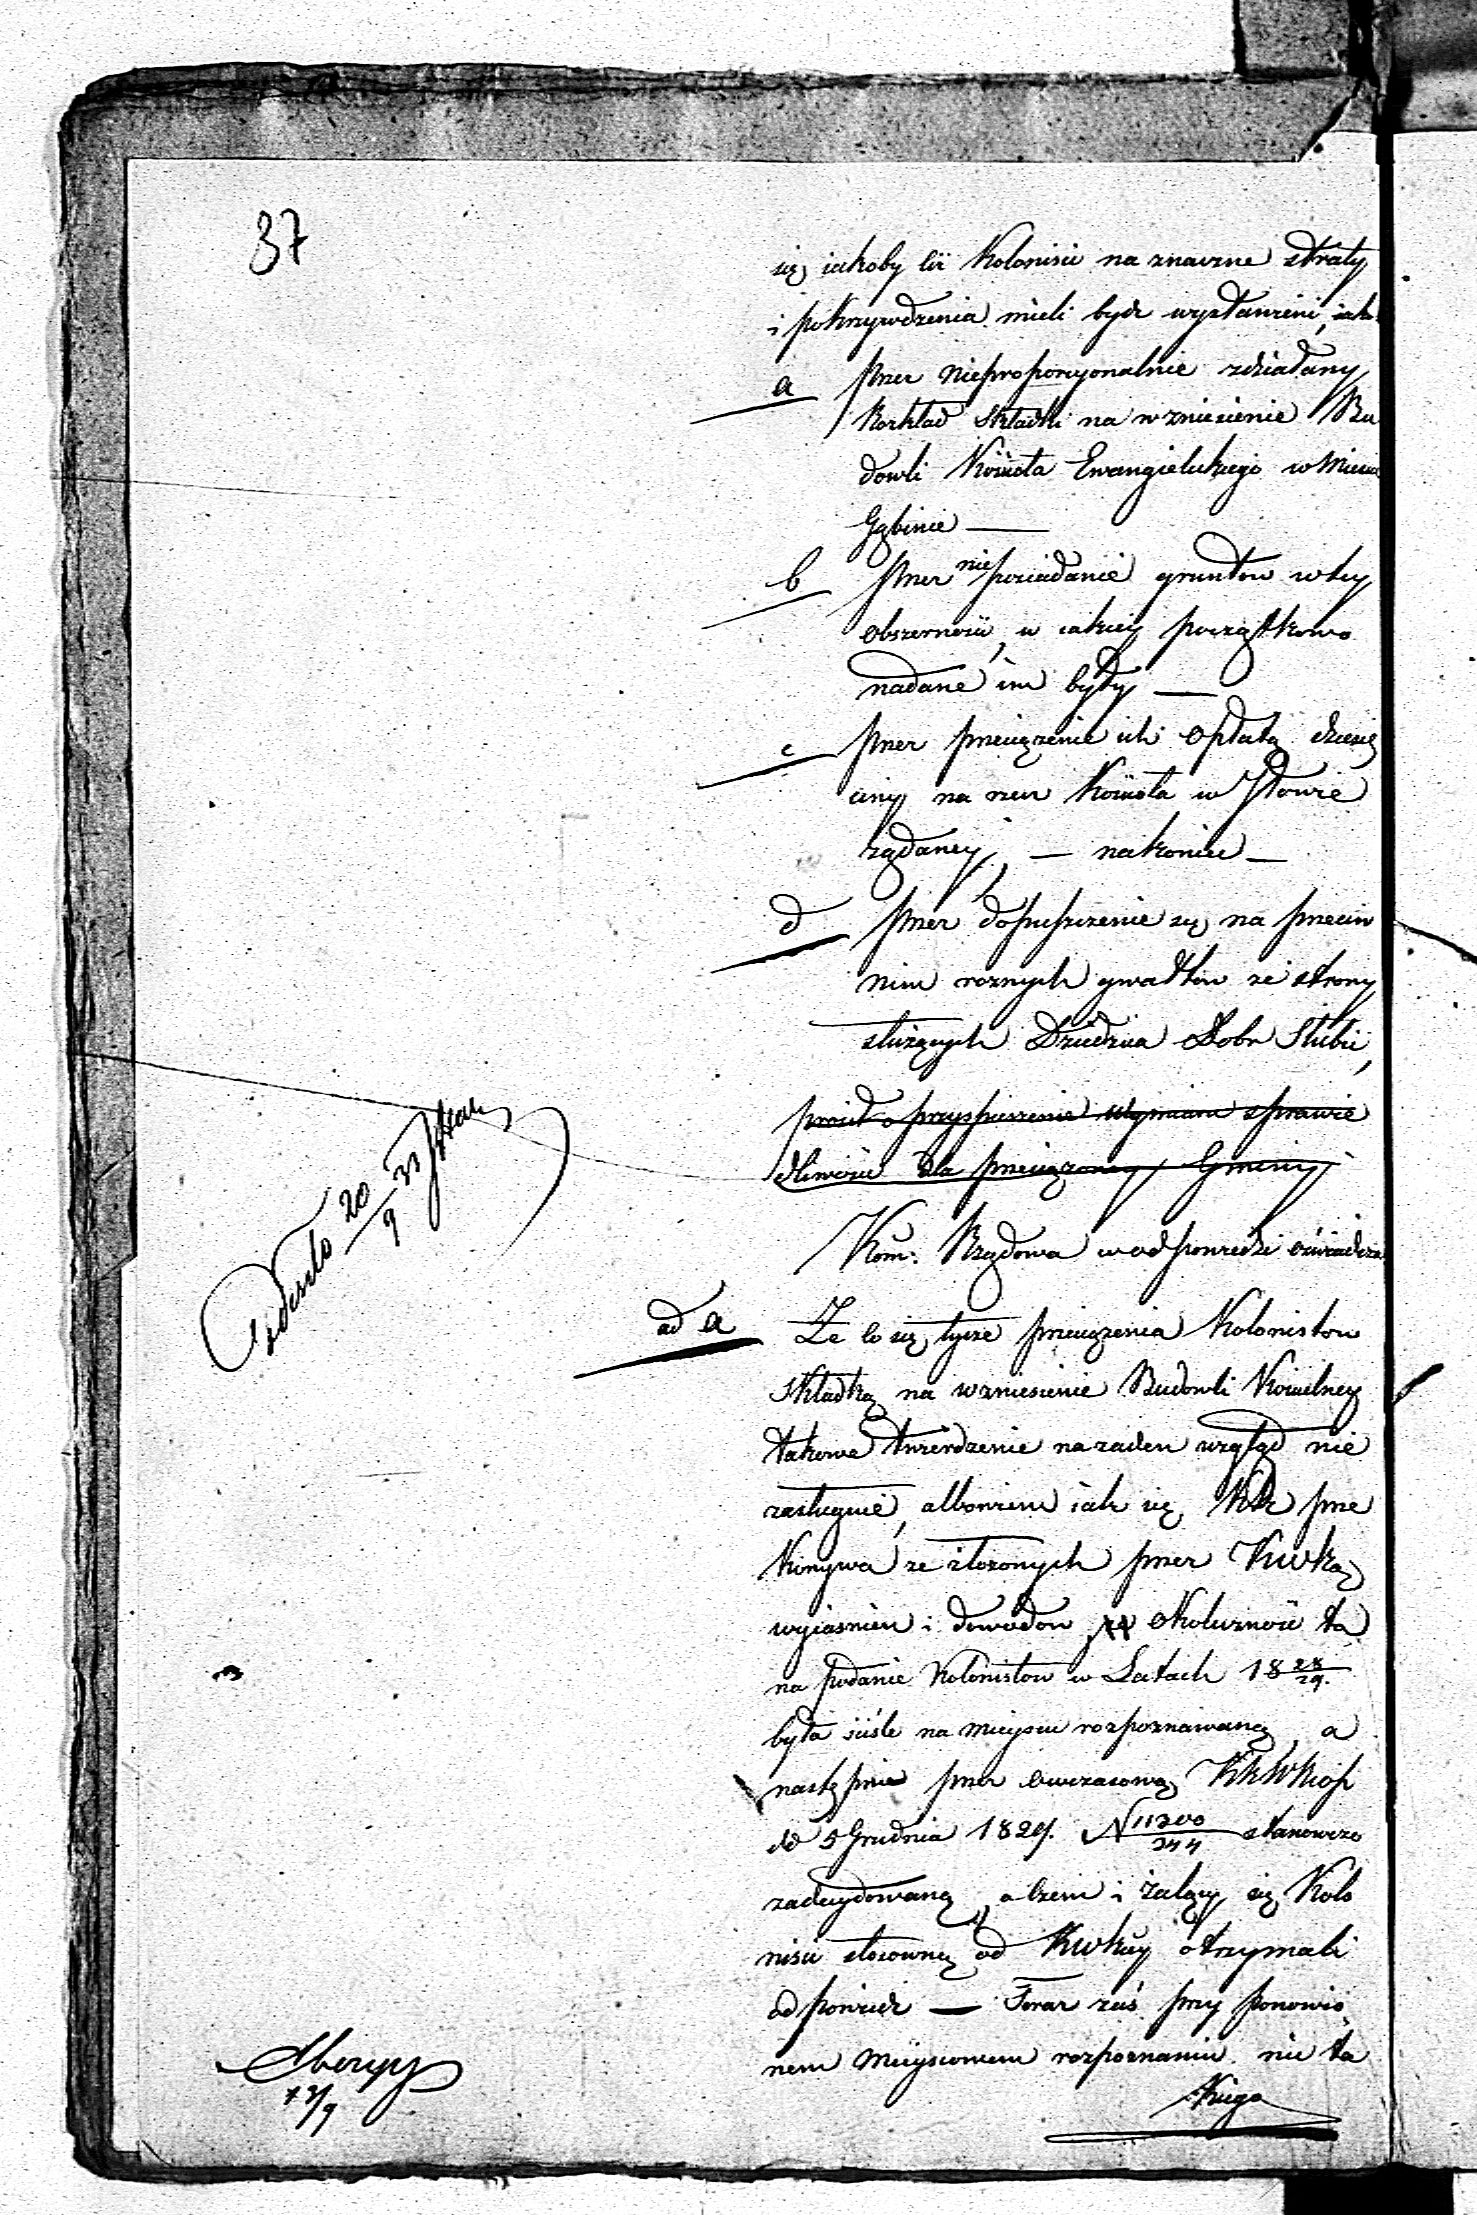 37
się jakoby cii Koloniści na znaczne straty
i pokrzywdzenia mieli bydź wystawieni, jako
a przez nieproporcyonalnie zdziałany
Rozkład składki na wzniesienie Bu
dowli Kościoła Ewangielickiego w Mieście
Gąbinie —
b przez nieposiadanie gruntow w tey
obszerności, w jakiey początkowo
nadane im były —
c przez przeciążenie ich opłatą dziesię
ciny na rzecz Kościoła w Jłowie
żądaney, — nakoniec —
d przez dopuszczenie się na przeciw
nim roznych gwałtow ze strony
służących Dziedzica Dobr Słubic,
prosił o przyspieszenie wymiaru sprawie
dliwości dla przeciążoney Gminy
Kom: Rządowa w odpowiedzi oświadcza
ad a Że co się tycze przeciążenia Kolonistow
składką na wzniesienie Budowli Kościelney
takowe twierdzenie na żaden wzgląd nie
zasługuie, albowiem iak się KR prze
konywa ze złożonych przez KWką
wyiaśnień i dowodow okoliczność ta
na podanie Kolonistow w Latach 18 28/29.
była ściśle na mieyscu rozpoznawaną, a
następnie przez owczasową
dd 5 Grudnia 1829. N 11200/244 stanowczo
zadecydowaną, o czem i żalący się Kolo
niści stosowną od KWkiey otrzymali
odpowiedź — Teraz zaś przy ponowio
nem mieyscowem rozpoznaniu nie ta
20/9 33
13/9